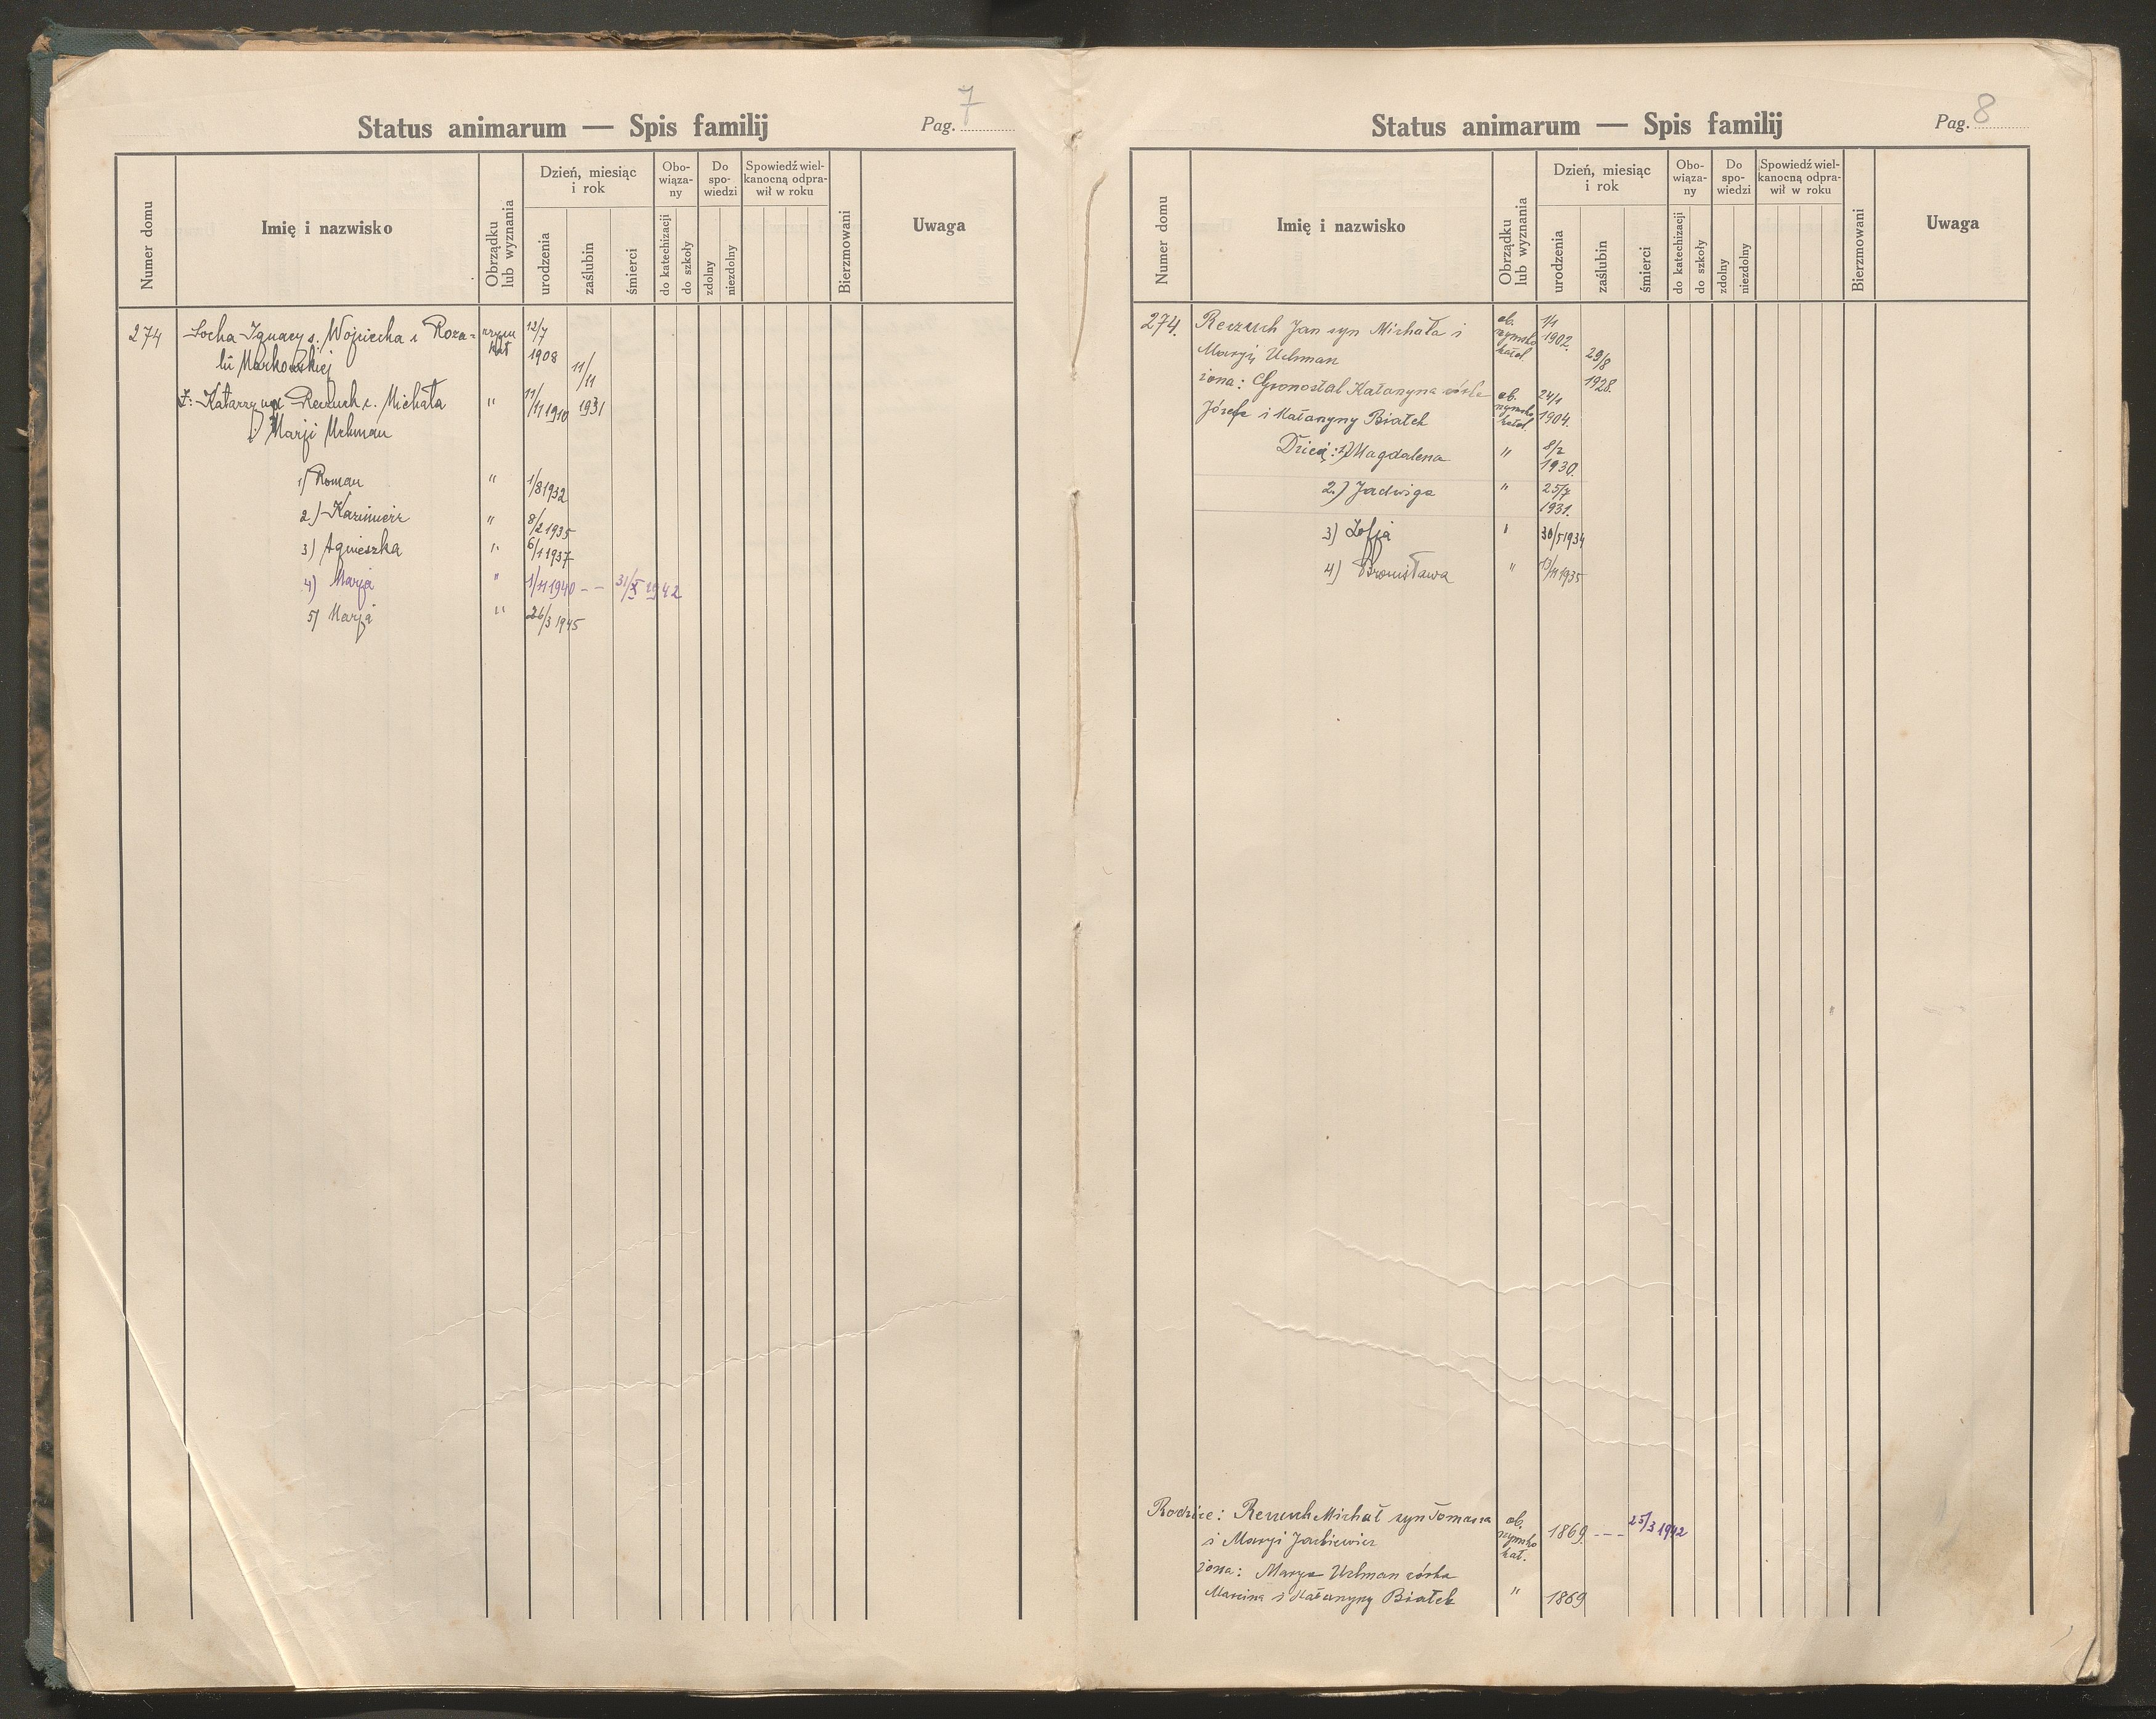 Status animarum — Spis familij
Pag. 7
Numer domu
Imię i nazwisko
Obrządku
lub wyznania
Dzień, miesiąc
i rok
urodzenia
zaślubin
śmierci
Obo-
wiąza-
ny
do katechizacji
do szkoły
Do
spo-
wiedzi
zdolny
niezdolny
Spowiedź wiel-
kanocną odpra-
wił w roku
Bierzmowani
Uwaga
274 Socha Ignacy s. Wojciecha i Roza- rzym 12/7
lii Markowskiej kat 1908 11/11
Ż: Katarzyna Reczuch c. Michała " 11/11 1910 1931
i Marji Uchman
1) Roman " 1/8 1932
2) Kazimierz " 8/2 1935
3) Agnieszka " 6/1 1937
4) Marja " 1/11 1940 - - 31/X 1942
5) Marja " 26/3 1945
Status animarum — Spis familij
Pag. 8
Numer domu
Imię i nazwisko
Obrządku
lub wyznania
Dzień, miesiąc
i rok
urodzenia
zaślubin
śmierci
Obo-
wiąza-
ny
do katechizacji
do szkoły
Do
spo-
wiedzi
zdolny
niezdolny
Spowiedź wiel-
kanocną odpra-
wił w roku
Bierzmowani
Uwaga
274. Reczuch Jan syn Michała i ob. rzymsko katol. 1/1 1902.
Maryi Uchman 29/8 1928.
żona: Gronostal Katarzyna córka ob. rzymsko katol. 24/1
Józefa i Katarzyny Białek 1904.
Dzieci: 1) Magdalena " 8/2 1930.
2.) Jadwiga " 25/7 1931.
3) Zofja " 30/5 1934
4) Bronisława " 13/11 1935
Rodzice: Reczuch Michał syn Tomasza ob. rzymsko kat. 1869. - - - 25/3 1942
i Maryi Jackiewicz
żona: Marya Uchman córka
Marcina i Katarzyny Białek " 1869